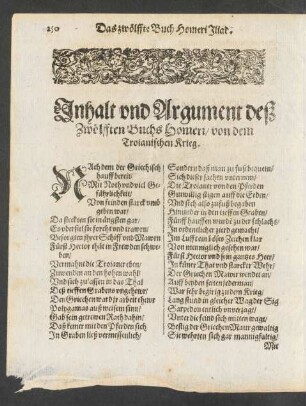 250 Das zwölffte Buch Homeri Iliad.
Inhalt vnd Argument deß
Zwölfften Buchs Homeri/ von dem
Troianischen Krieg.
NAch dem der Griechisch
hauff bereit
Mit Noth vnd viel Ge-
fährlichkeit
Von feinden starck vmb
geben war/
Da stecktens sie in ängsten gar/
Es vberfiel sie forcht vnd trawren/
Besorgten jhrer Schiff vnd Mawren
Fürst Hector thät in Frewden schwe-
ben/
Vermahnt die Troianer eben/
Zuwenden an den hohen wahl/
Vnd sich zulassen in das Thal
Deß tieffen Grabens vngehewr/
Den Griechen ward jr arbeit thewr
Polydamas auß weisem sinn/
Gab sein getrewen Rath dahin/
Daß keiner mit den Pferden sich
In Graben ließ vermessenlich/
Sondern daß man zu fuß draussen/
Sich dieser sachen
Die Troianer von den Pferden
Gutwillig stigen auff die Erden/
Vnd sich also zufuß begaben
Hinunder in den tieffen Graben/
Fünff hauffen wurden zu der schlacht/
In ordentlicher zierd gemacht/
Im Lufft ein böses Zeichen klar
Von menniglich gesehen war/
Fürst Hector vnd sein gantzes Heer/
Inküner That vnd starcker Wehr/
Der Griechen Mawren wendet an/
Auff beiden seiten jederman/
War sehr begirig zu dem Krieg/
Lang stund in gleicher Wag der Sig
Sarpedon entlich vnverzagt/
Vnder die feind sich mitten wagt/
Bestieg der Griechen Mawr gewaltig
Sie wehrten sich gar manigfaltig/
Mit